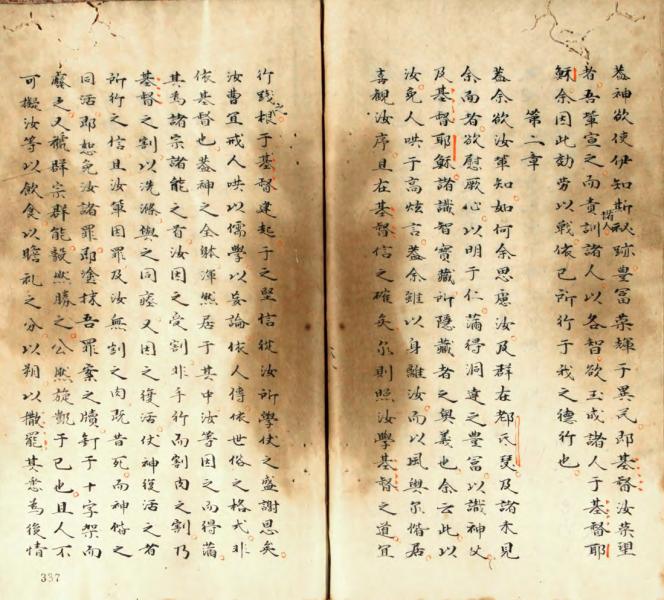 蓋神欲使伊知斯秘跡豊富榮輝于異民即基督汝榮望
者吾輩宣之而責訓諸人以各智欲玉成諸人于基督耶
穌余因此劾勞以戰依己所行于我之德行也
第二章
蓋余欲汝軰知如何余思慮汝及群在都氏及諸未見
余面者欲慰厥心以明于仁滿得洞達之豊富以識神父
及基督耶穌諸識智寶藏所隱藏者之奥義也余云此以
汝免人哄于高炫言蓋余雖以身離汝而以風與尔偕居
喜觀汝序且在基督信之確矣尔則照汝學基督之道宜
行踐之根于基督建起于之堅信從汝所學伏之盛謝恩矣
汝曹宜戒人哄以儒學以妄論依人傳依世俗之格式非
依基督也蓋神之全體渾然居于其中汝等因之而得滿
其為諸宗諸能之首汝因之受割非手行而割肉之割乃
基督之割以洗滌與之同瘞又因之復活伏神復活之者
所行之信且汝軰因罪及汝無割之肉既昔死而神偕之
同活即恕免汝諸罪即塗抹吾罪案之牘釘于十字架而
癈之又褫群宗群能毅然勝之公然旋凱于己也且人不
可擬汝等以飲食以瞻礼之分以朔以撒罷其悉為後情
337